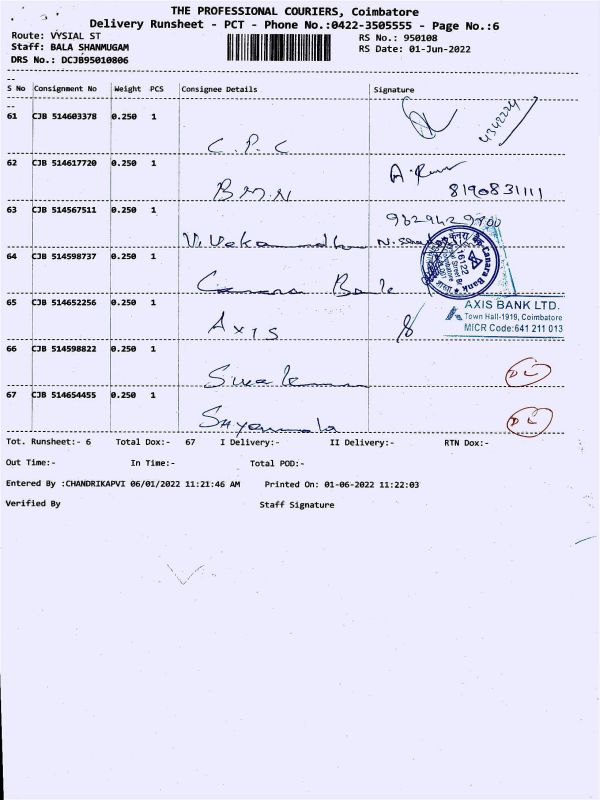 THE PROFESSIONAL COURIERS, Coimbatore
Delivery Runsheet - PCT - Phone No.:0422-3505555 - Page No.:6
Route: VYSIAL ST
RS No.: 950108
Staff: BALA SHANMUGAM
RS Date: 01-Jun-2022
DRS No.: DCJB95010806
S No Consignment No Weight PCS Consignee Details Signature
61 CJB 514603378 0.250 1
4342224
C.P.C
62 CJB 514617720 0.250 1
B.M.N
8190831111
63 CJB 514567511 0.250 1
9629429700
64 CJB 514598737 0.250 1
Canara Bank
16122
Canara Bank
65 CJB 514652256 0.250 1
Axis
AXIS BANK LTD.
Town Hall-1919, Coimbatore
MICR Code:641 211 013
66 CJB 514598822 0.250 1
DL
67 CJB 514654455 0.250 1
Shyamala
DL
Tot. Runsheet:- 6 Total Dox:- 67 I Delivery:- II Delivery:- RTN Dox:-
Out Time:- In Time:- Total POD:-
Entered By :CHANDRIKAPVI 06/01/2022 11:21:46 AM Printed On: 01-06-2022 11:22:03
Verified By Staff Signature